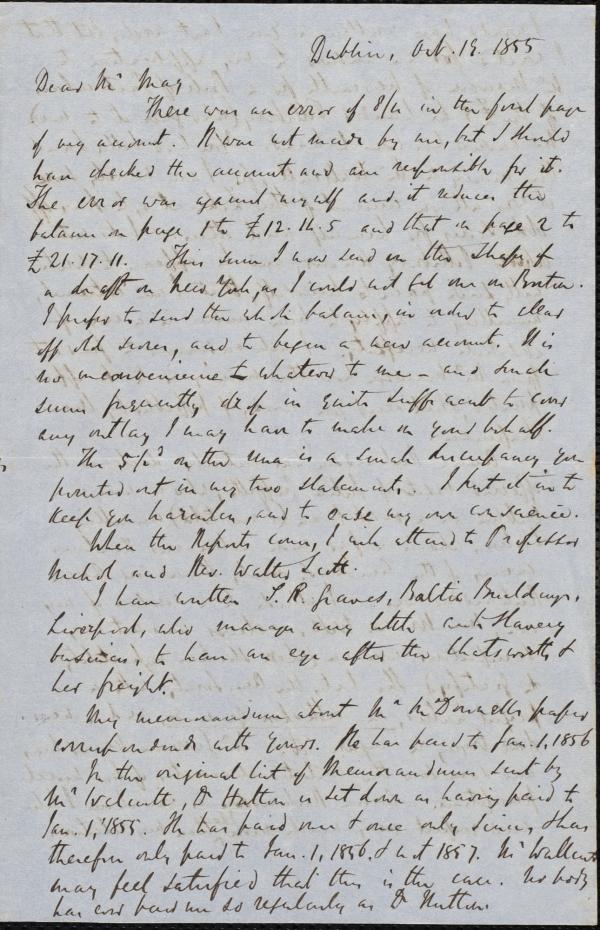 Dublin, Oct. 19. 1855
Dear Mr May
There was an error of 8/11 in the first page
of my account. It was not made by me, but I should
have checked the account and am responsible for it.
The error was against myself and it reduces the
balance on page 1 to £12.14.5 and that on page 2 to
£21.17.11. This sum I now send in the shape of
a draft on New York, as I could not get one on Boston.
I prefer to send the whole balance, in order to clear
off old scores, and to begin a new account. It is
no inconvenience whatever to me - and small
sums frequently drop in quite sufficient to cover
any outlay I may have to make on your behalf.
The 5/2 on the is a small discrepancy you
pointed out in my two statements. I put it in to
keep you harmless, and to ease my own conscience.
When the Reports come, I will attend to Professor
Nichol and Rev. Walter Scott.
I have written S. R. Graves, Baltic Buildings,
Liverpool, who manages any little anti Slavery
business, to have an eye after the Chatsworth &
her freight.
My memorandum about Mr McDonnell's paper
corresponds with yours. He has paid to Jan. 1, 1856
In the original list of Memorandums sent by
Mr Wallcutt, Dr Hutton is set down as having paid to
Jan. 1, 1855. He has paid me once & once only since, & has
therefore only paid to Jan. 1, 1856, & not 1857. Mr Wallcutt
may feel satisfied that this is the case. Nobody
has ever paid me so regularly as Dr Hutton